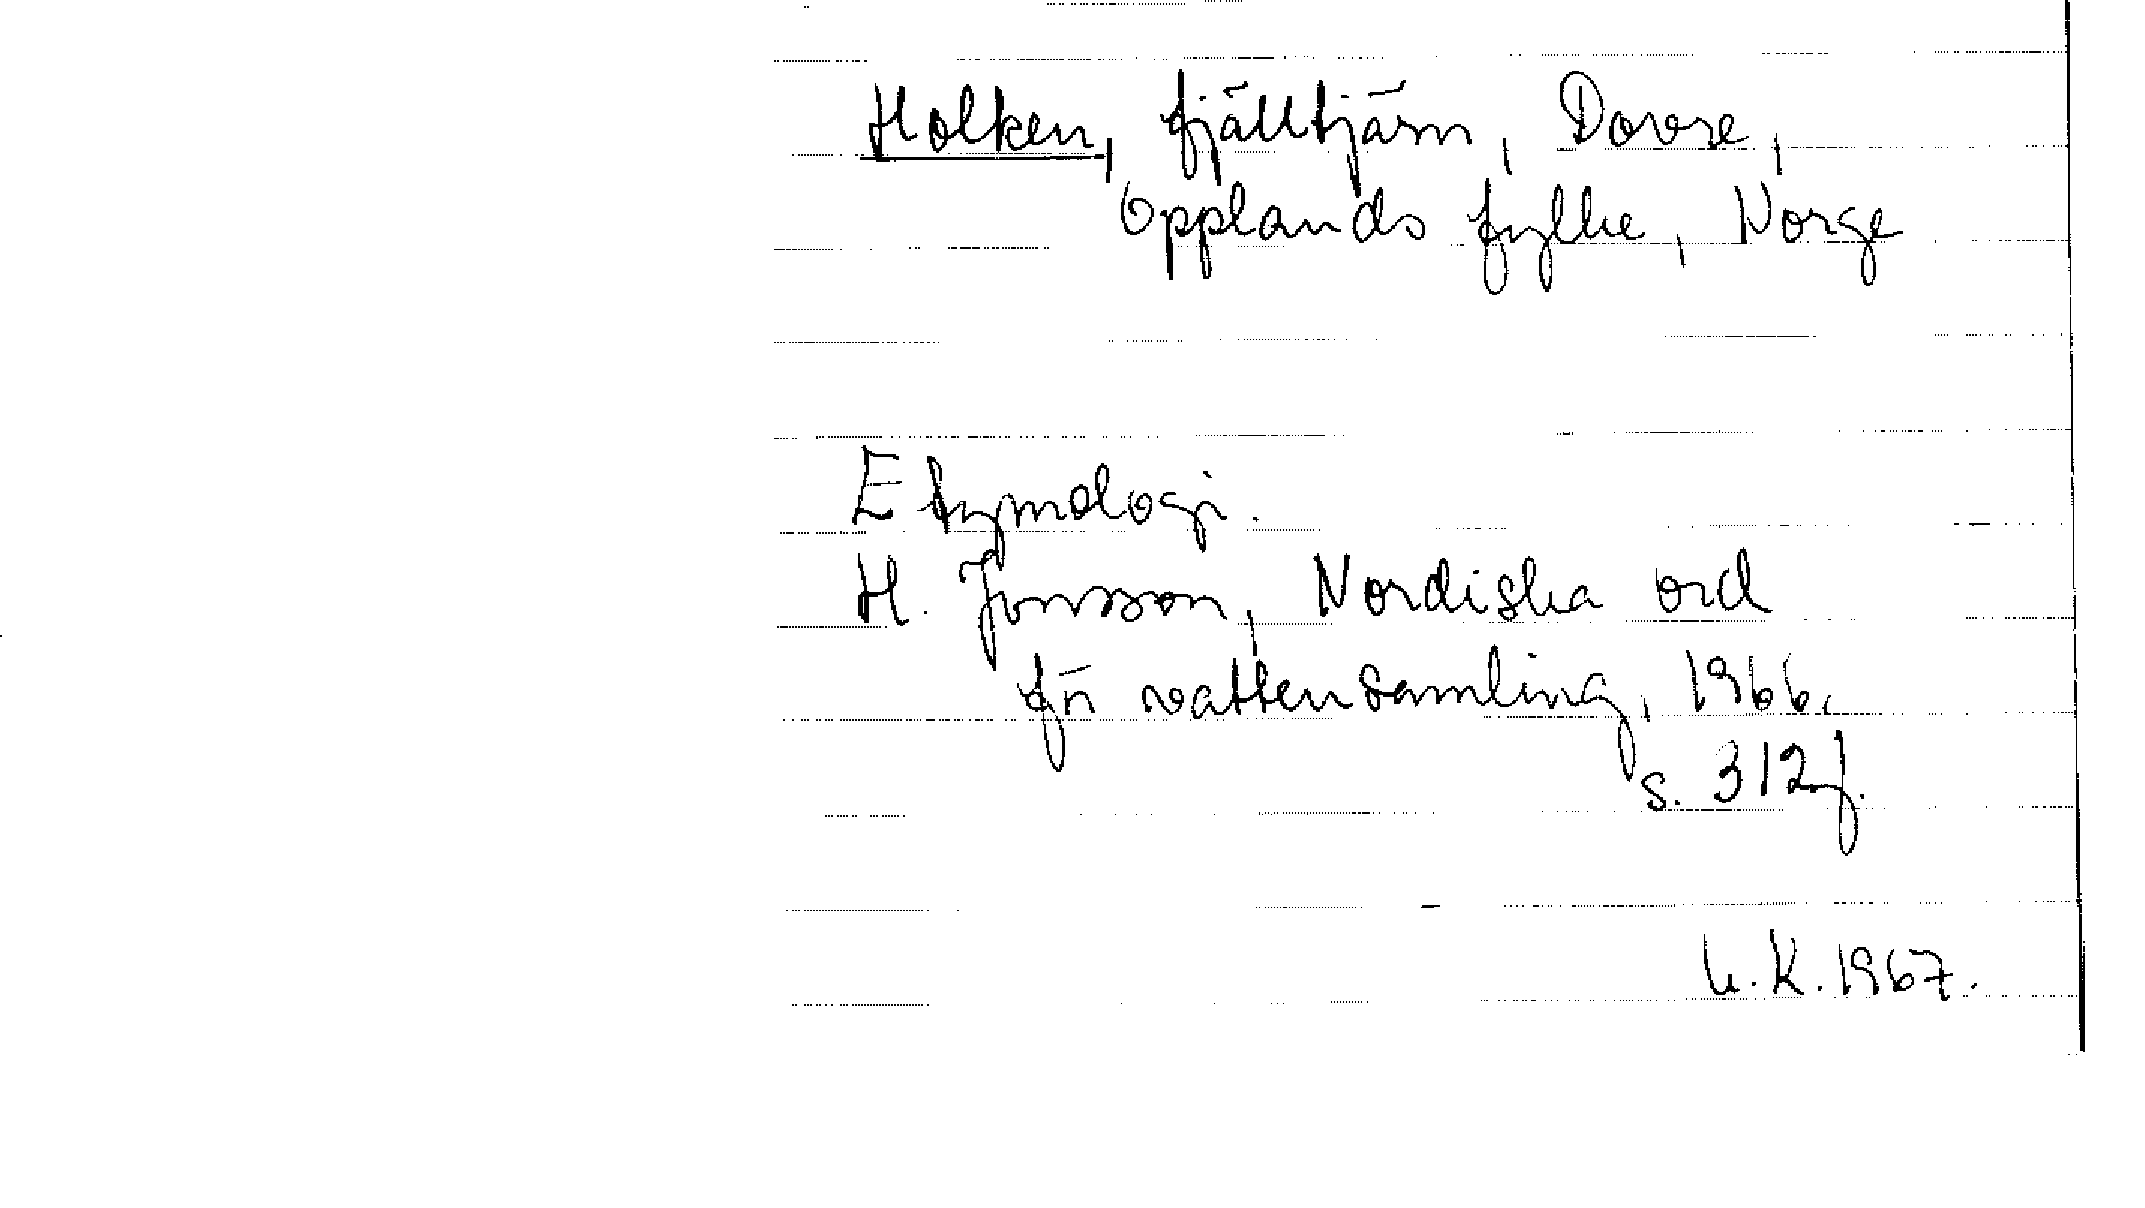 Holken, fjälltjärn, Dovre,
Opplands fylke, Norge
Etymologi.
H. Jonsson, Nordiska ord
för vattensamling, 1966,
s. 312f.
U.K. 1967.